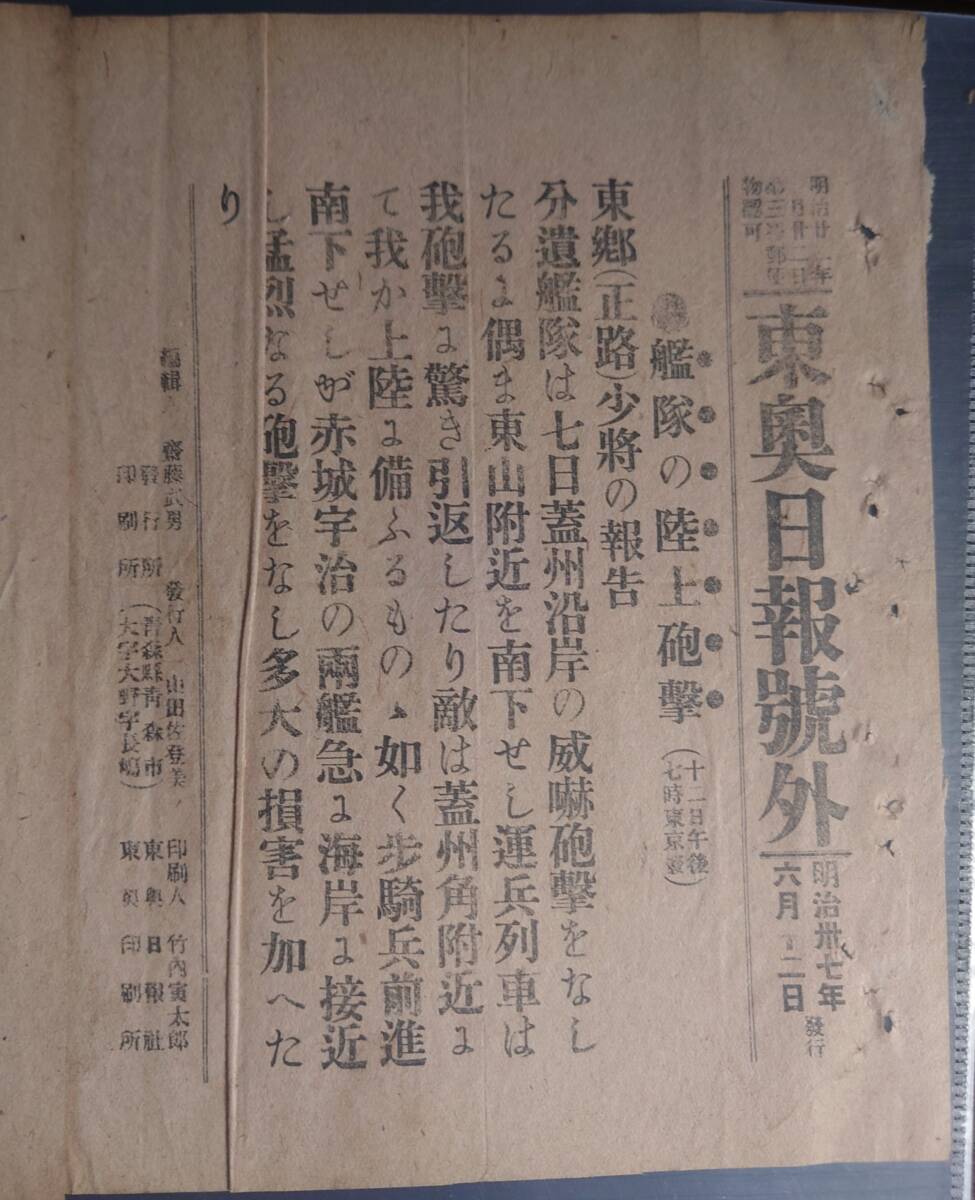 明治廿一年
月廿二日
第三種郵便
物認可
東奥日報號外
明治卅七年
六月十二日
發行
艦隊の陸上砲擊
(十二日午後
七時東京發)
東鄕(正路)少將の報告
分遺艦隊は七日蓋州沿岸の威嚇砲擊をなし
たるに偶ま東山附近を南下せし運兵列車は
我砲擊に驚き引返したり敵は蓋州角附近に
て我か上陸に備ふるものゝ如く步騎兵前進
南下せしが赤城宇治の兩艦急に海岸に接近
し猛烈なる砲擊をなし多大の損害を加へた
り
編輯人 齋藤武男 發行人 山田佐登美 印刷人 竹內寅太郞
發行所 (靑森縣靑森市 東奥日報社
印刷所 (大字大野字長嶋) 東奥印刷所